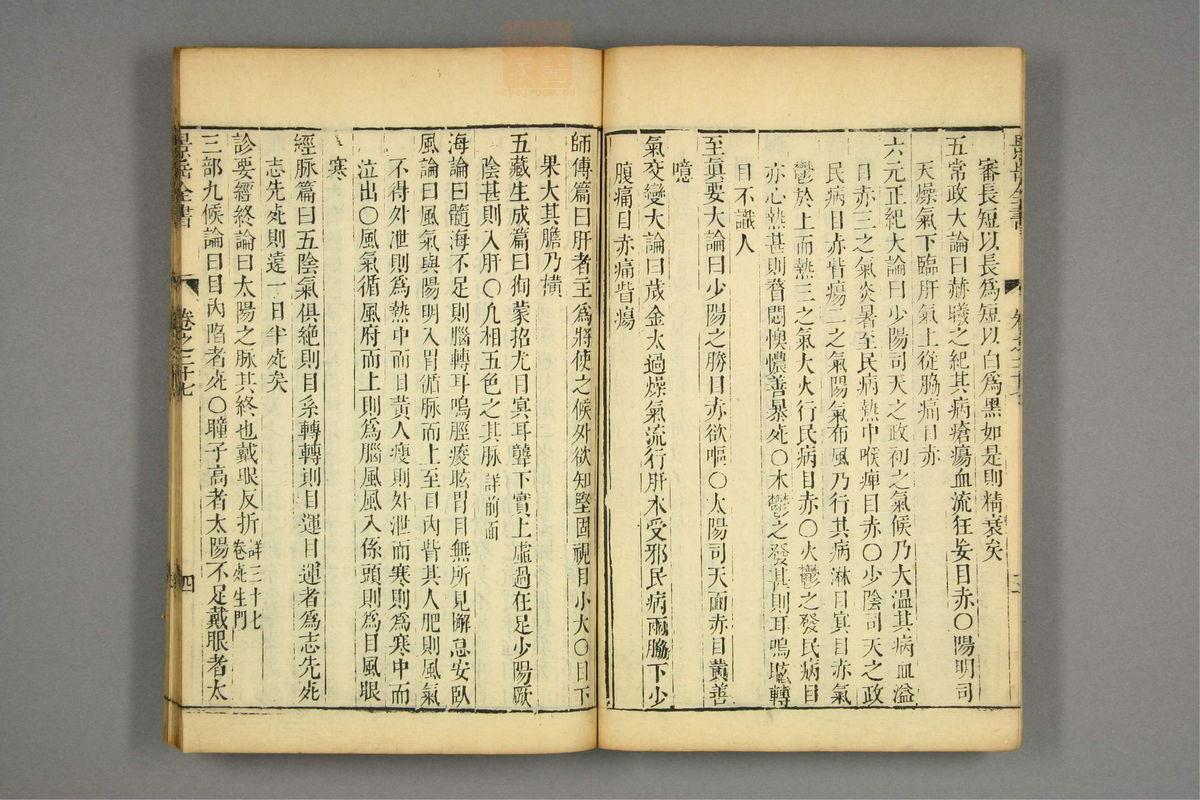 審長短以長爲短以白爲黑如是則精衰矣
五常政大論曰赫曦之紀其病瘡瘍血流狂妄目赤〇陽明司
天燥氣下臨肝氣上從脇痛目赤
六元正紀大論曰少陽司天之政初之氣候乃大温其病血溢
目赤三之氣炎暑至民病熱中喉痺目赤〇少陰司天之政
民病目赤眥瘍二之氣陽氣布風乃行其病淋目瞑目赤氣
鬱於上而熱三之氣大火行民病目赤〇火鬱之發民病目
赤心熱甚則瞀悶懊憹善暴死〇木鬱之發甚則耳鳴眩轉
目不識人
至眞要大論曰少陽之勝目赤欲嘔〇太陽司天面赤目黃善
噫
氣交變大論曰歲金太過燥氣流行肝木受邪民病兩脇下少
腹痛目赤痛眥瘍
師傳篇曰肝者主爲將使之候外欲知堅固視目小大〇目下
果大其膽乃橫
五藏生成篇曰徇蒙招尤目冥耳聾下實上虛過在足少陽厥
陰甚則入肝〇凡相五色之其脉詳前面
海論曰髓海不足則腦轉耳鳴脛痠眩冒目無所見懈怠安臥
風論曰風氣與陽明入胃循脉而上至目內眥其人肥則風氣
不得外泄則爲熱中而目黃人瘦則外泄而寒則爲寒中而
泣出〇風氣循風府而上則爲腦風風入係頭則爲目風眼
寒
經脉篇曰五陰氣俱絶則目系轉轉則目運目運者爲志先死
志先死則遠一日半死矣
診要經終論曰太陽之脉其終也戴眼反折詳三十七卷死生門
三部九候論曰目內陷者死〇瞳子高者太陽不足戴眼者太
景岳全書
卷之二十七
四